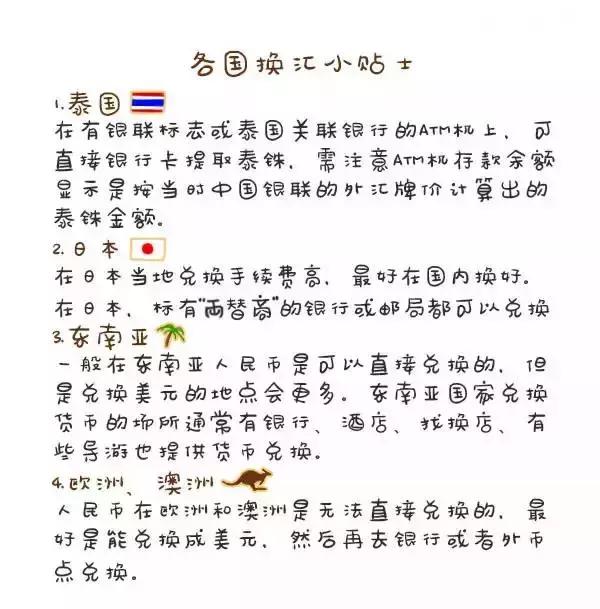 各国换汇小贴士
1.泰国
在有银联标志或泰国关联银行的ATM机上，可
直接银行卡提取泰铢，需注意ATM机存款余额
显示是按当时中国银联的外汇牌价计算出的
泰铢金额。
2.日本
在日本当地兑换手续费高，最好在国内换好。
在日本，标有"两替商"的银行或邮局都可以兑换
3.东南亚
一般在东南亚人民币是可以直接兑换的，但
是兑换美元的地点会更多。东南亚国家兑换
货币的场所通常有银行、酒店、找换店、有
些导游也提供货币兑换。
4.欧洲、澳洲
人民币在欧洲和澳洲是无法直接兑换的，最
好是能兑换成美元，然后再去银行或者外币
点兑换。